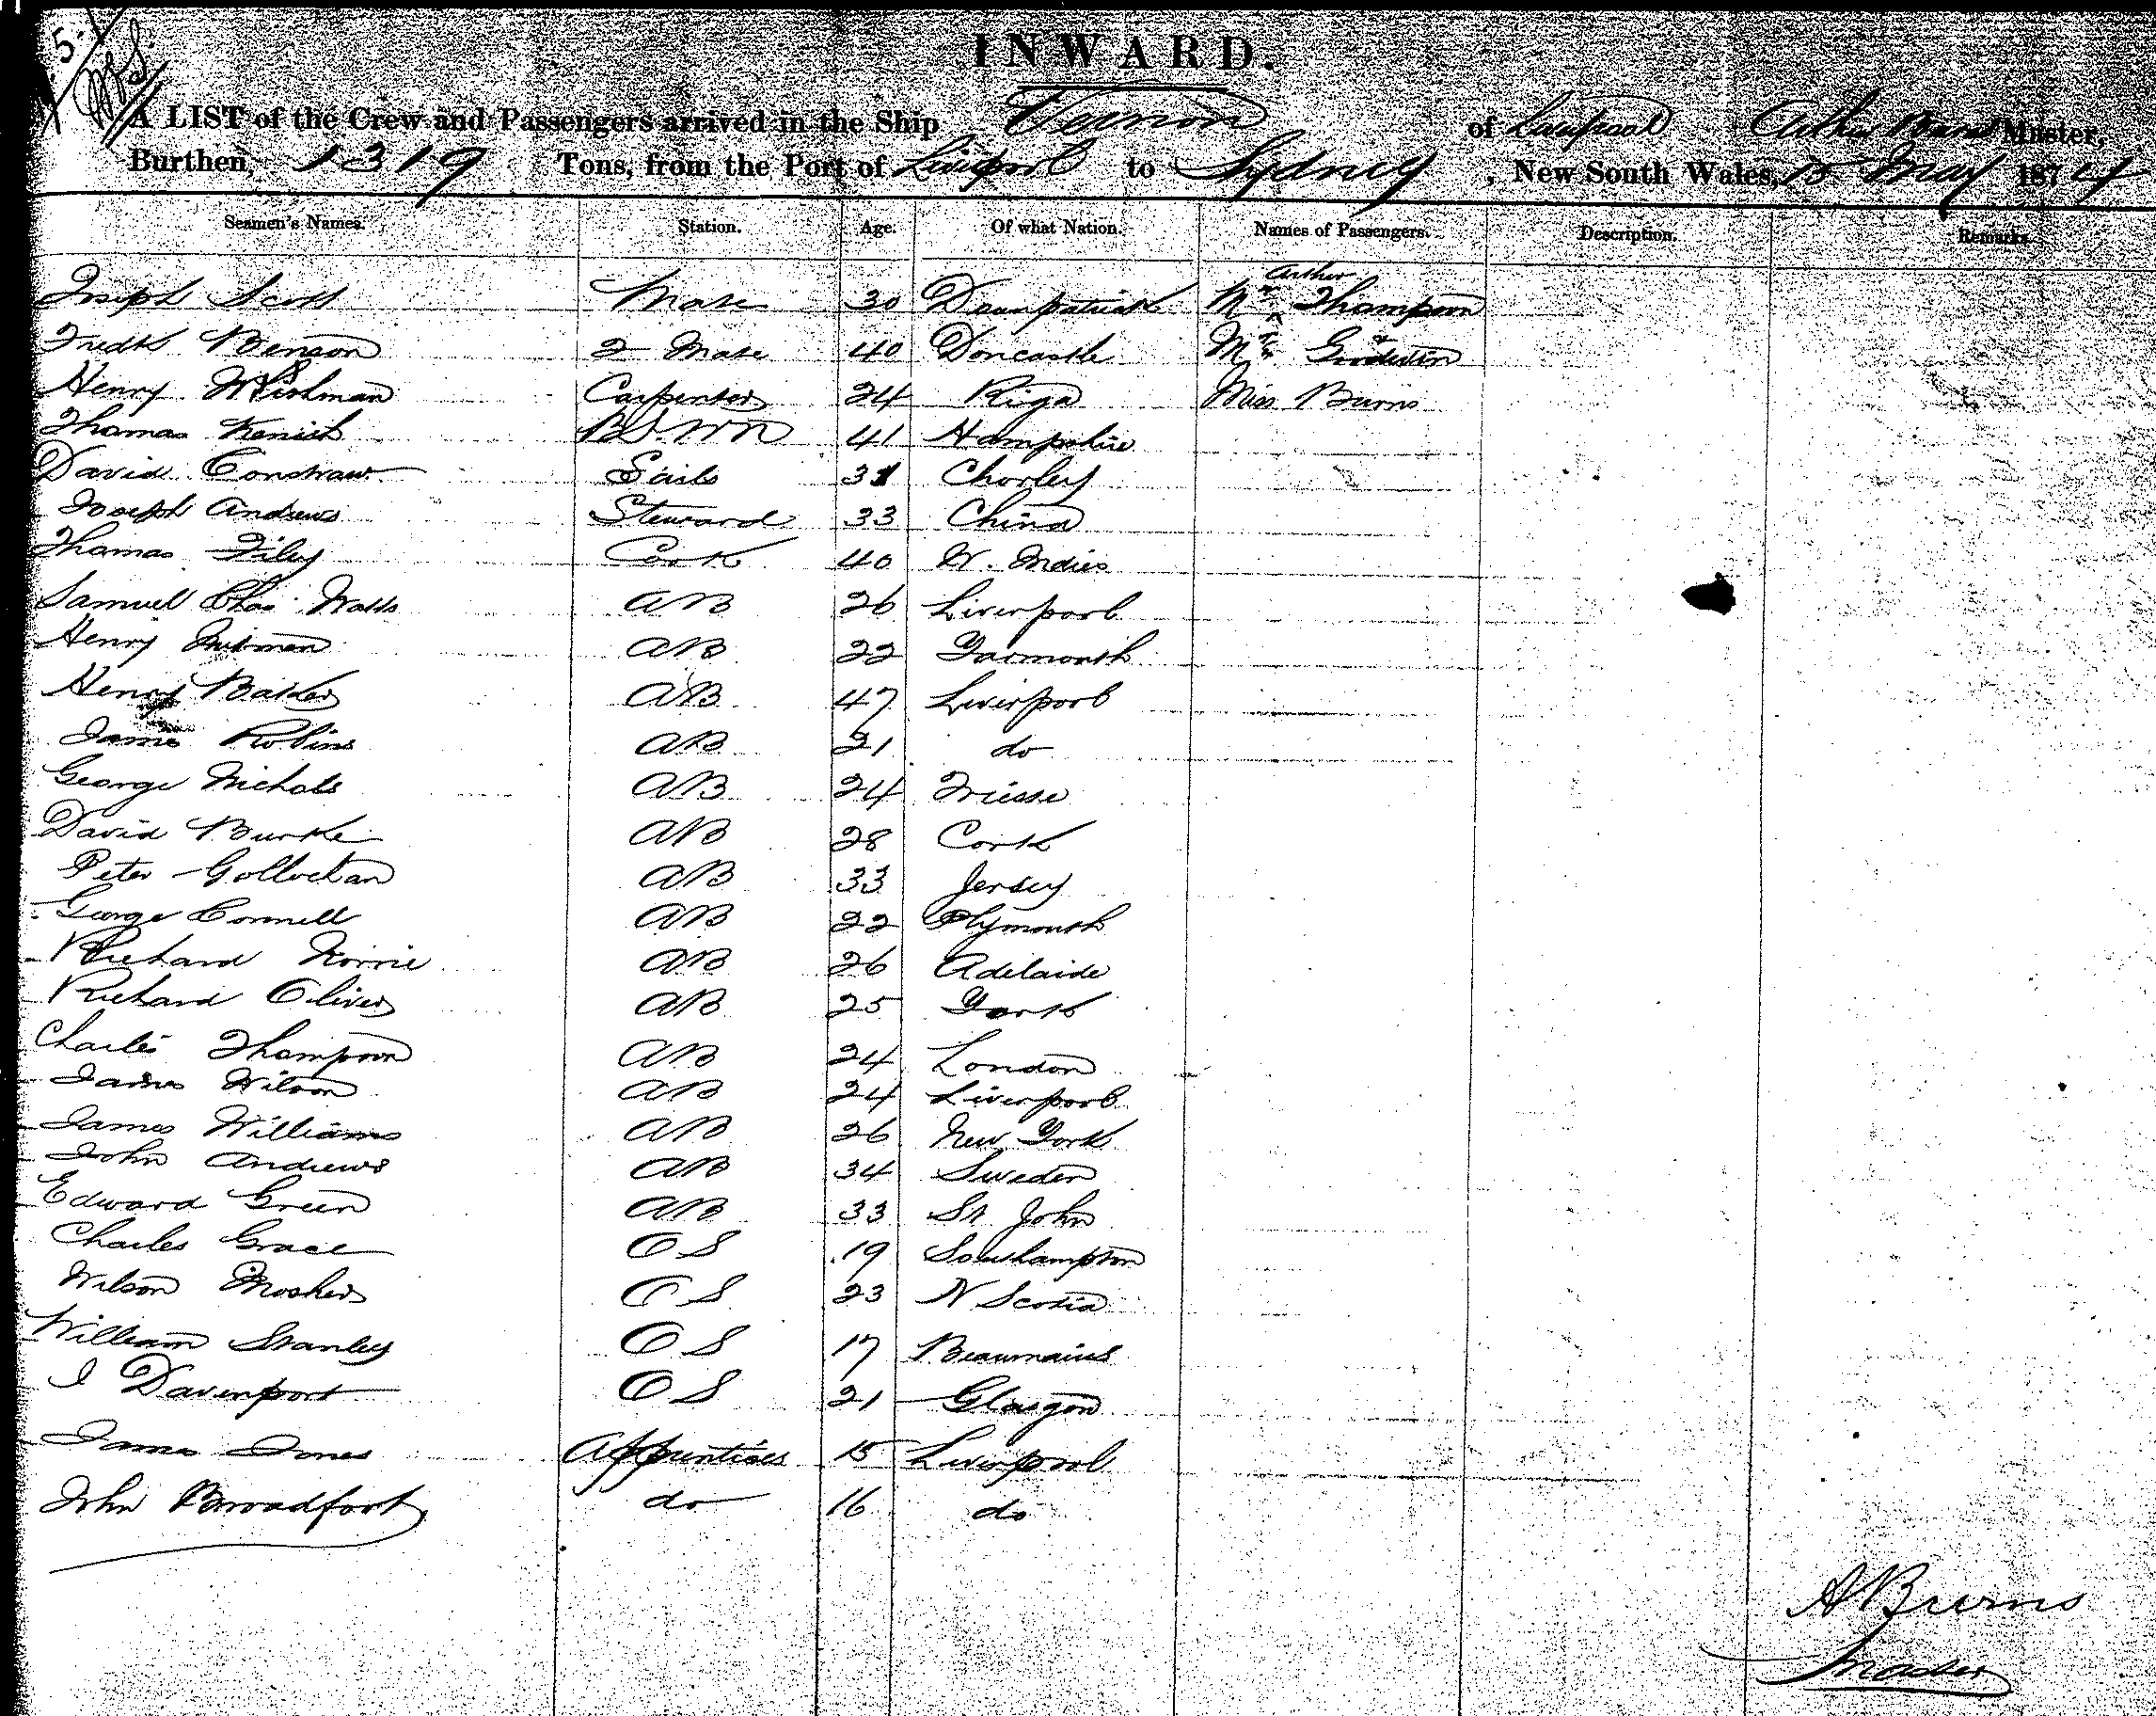 INWARD.
A LIST of the Crew and Passengers arrived in the Ship Vernon of Liverpool Arthur Burns Master,
Burthen, 1319 Tons, from the Port of Liverpool to Sydney, New South Wales, 15 May 1874
Seamen's Names. Station. Age. Of what Nation. Names of Passengers. Description. Remarks.
Joseph Scott Mate 30 Downpatrick Mr Arthur Thompson
Fredk Benson 2 Mate 40 Doncaster Mr
Henry Carpenter 24 Riga Miss Burns
Thomas Kenish 41 Hampshire
David Sails 31 Chorley
Joseph Andrews Steward 33 China
Thomas Filey Cook 40 W. Indies
Samuel Chas Watts AB 26 Liverpool
Henry AB 22 Yarmouth
Henry Barker AB 47 Liverpool
James Robins AB 21 do
George Nichols AB 24 Trieste
David Burke AB 28 Cork
Peter Gollochan AB 33 Jersey
George Connell AB 22 Plymouth
Richard Norrie AB 26 Adelaide
Richard Oliver AB 25 York
Charles Thompson AB 24 London
James Wilson AB 24 Liverpool
James Williams AB 26 New York
John Andrews AB 34 Sweden
Edward Green AB 33 St John
Charles Grace OS 19 Southampton
Wilson Mosher OS 23 N Scotia
William Stanley OS 17 Beaumaris
J Davenport OS 21 Glasgow
James Jones Apprentices 15 Liverpool
John Broadfoot do 16 do
A Burns
Master